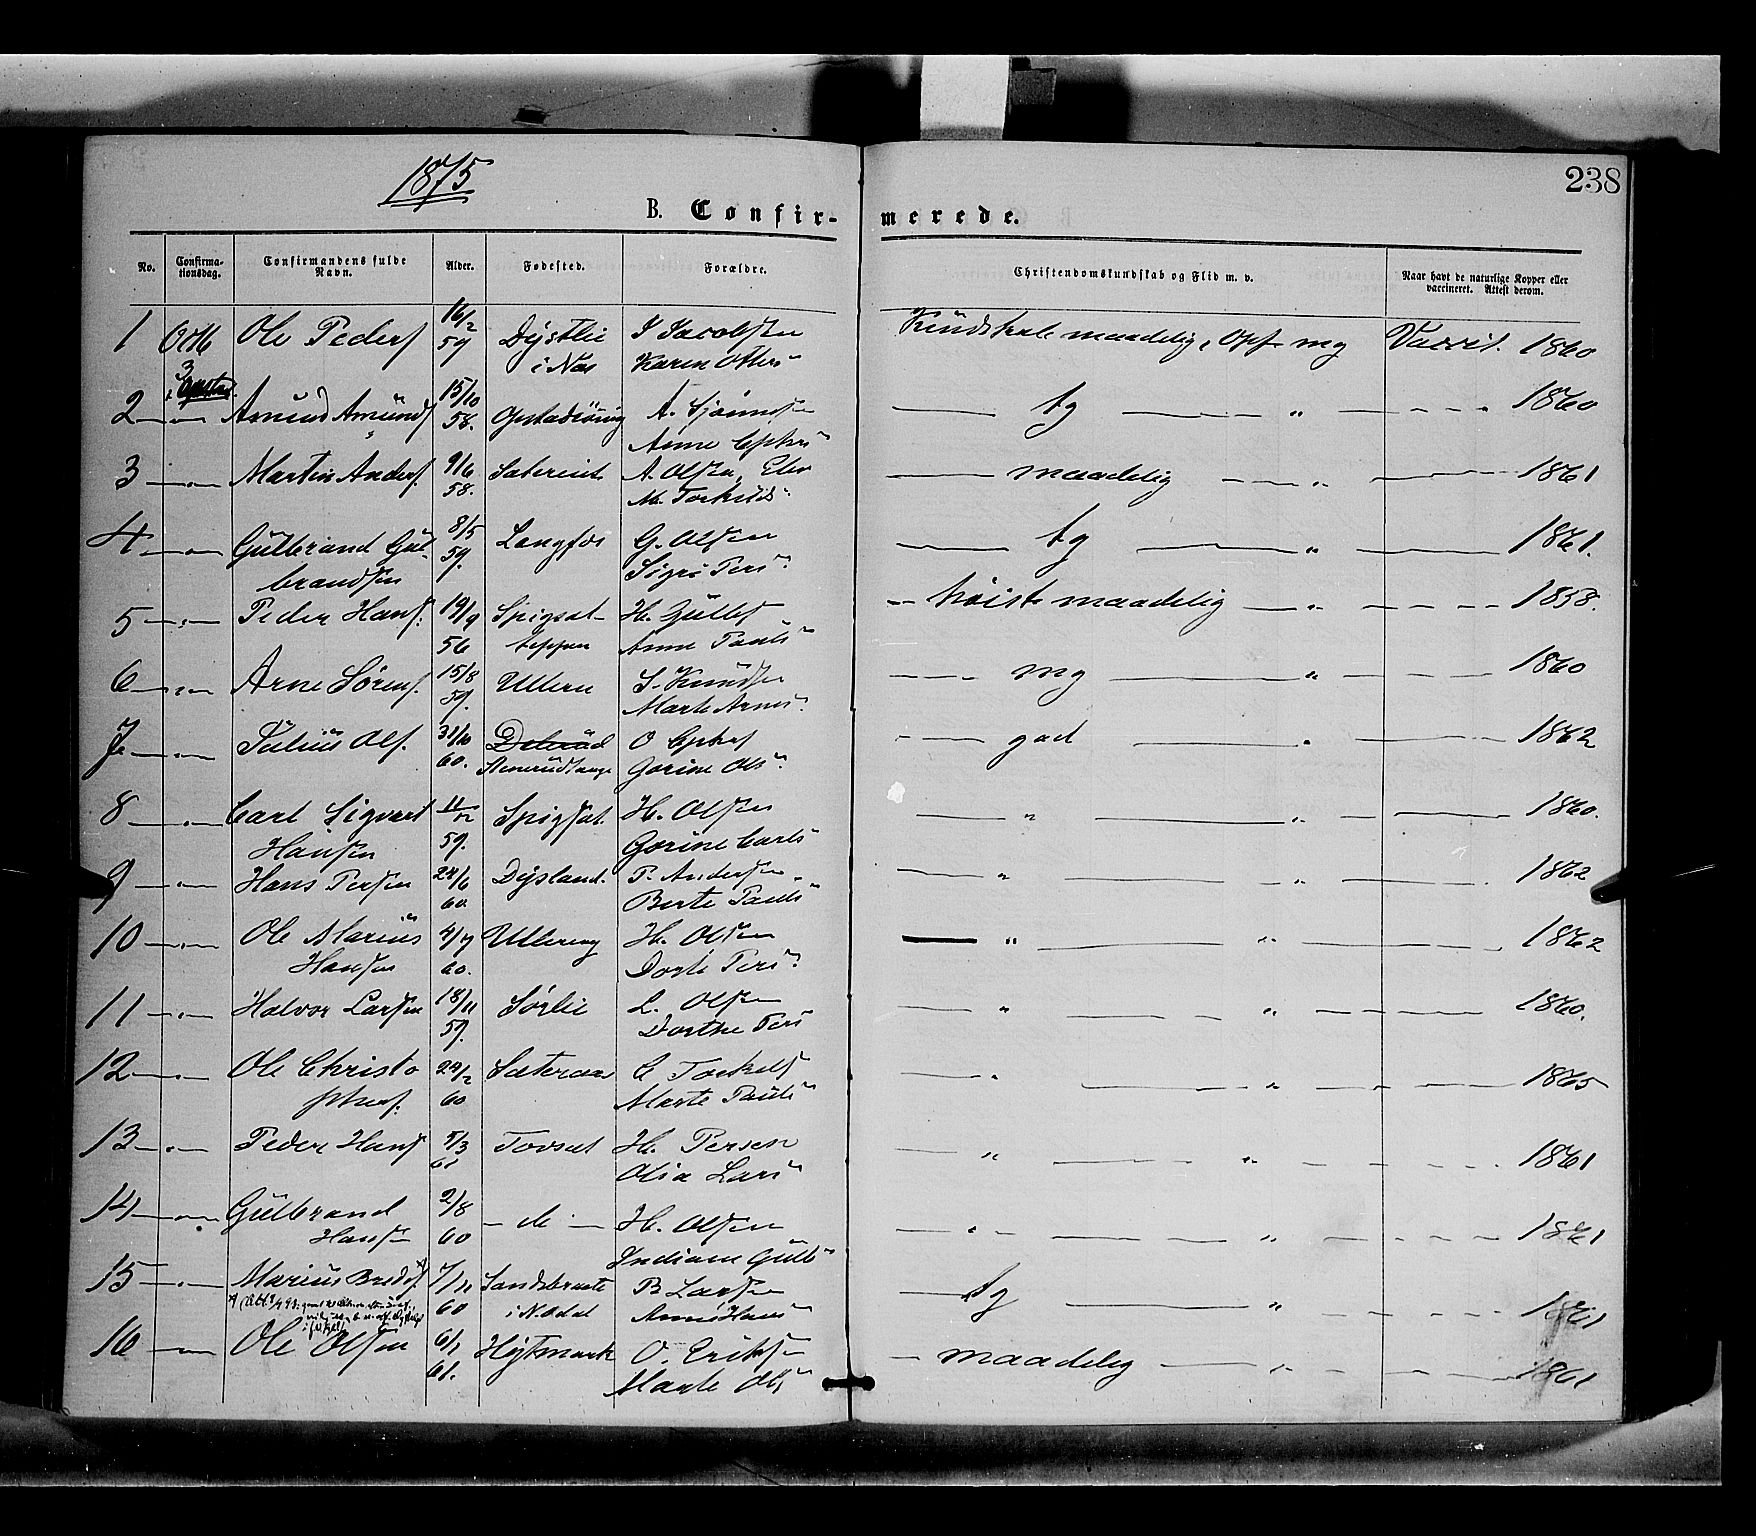 1875
238
B. Confir- merede.
No. Confirma-tionsdag. Confirmandens fulde Navn. Alder. Fødested. Forældre. Christendomskundskab og Flid m. v. Naar havt de naturlige Kopper eller vaccineret. Attest derom.
1 Octb 3 Ole Peders 16/2 59 Dystlie i Næs Karen Kundskab maadelig, Opf. mg 1860
2 — " — Amund Amunds 15/10 58. Anne tg — " — 1860
3 — " — Martin Anders. 9/6 58. A. Olsen, maadelig — " — 1861
4 — " — Gulbrand Gulbrandsen 8/5 59. Langfos G. Olsen Sigri Pers tg — " — 1861.
5 — " — Peder Hans. 19/9 56 H. Gulbs Anne Pauls høist maadelig — " — 1858.
6 — " — Arne Sørens. 15/8 59. Ullern S. Knudsen Marte Arnes mg — " — 1860
7 — " — Julius Ols. 31/10 60. Gorine Ols god — " — 1862
8 — " — Carl Sigvart Hansen 11/12 59. Spigset. H. Olsen Gorine Carls — " — 1860.
9 — " — Hans Persen 24/6 60. Dysland. P. Andersen Berte Pauls — " — 1862
10 — " — Ole Marius Hansen 4/7 60. Ullereng H. Olsen Dorte Pers — " — 1862
11 — " — Halvor Larsen 18/11 59. Sørlie L. Olsen Dorthe Pers — " — 1860.
12 — " — Ole Christophers. 24/2 60 C. Torkels Marte Pauls — " — 1865
13 — " — Peder Hans 5/3 61 Tovset H. Persen Olia Lars — " — 1861
14 — " — Gulbrand Hansen 2/8 60 — do — H. Olsen Indiane Gulb — " — 1861
15 — " — Marius Breds. 7/11 60 Sandsbraate i N. Odal B Larsen Anne Hans tg — " — 1861
16 — " — Ole Olsen 6/1 61. Højtmark O. Eriksen Marte Ols maadelig — " — 1861